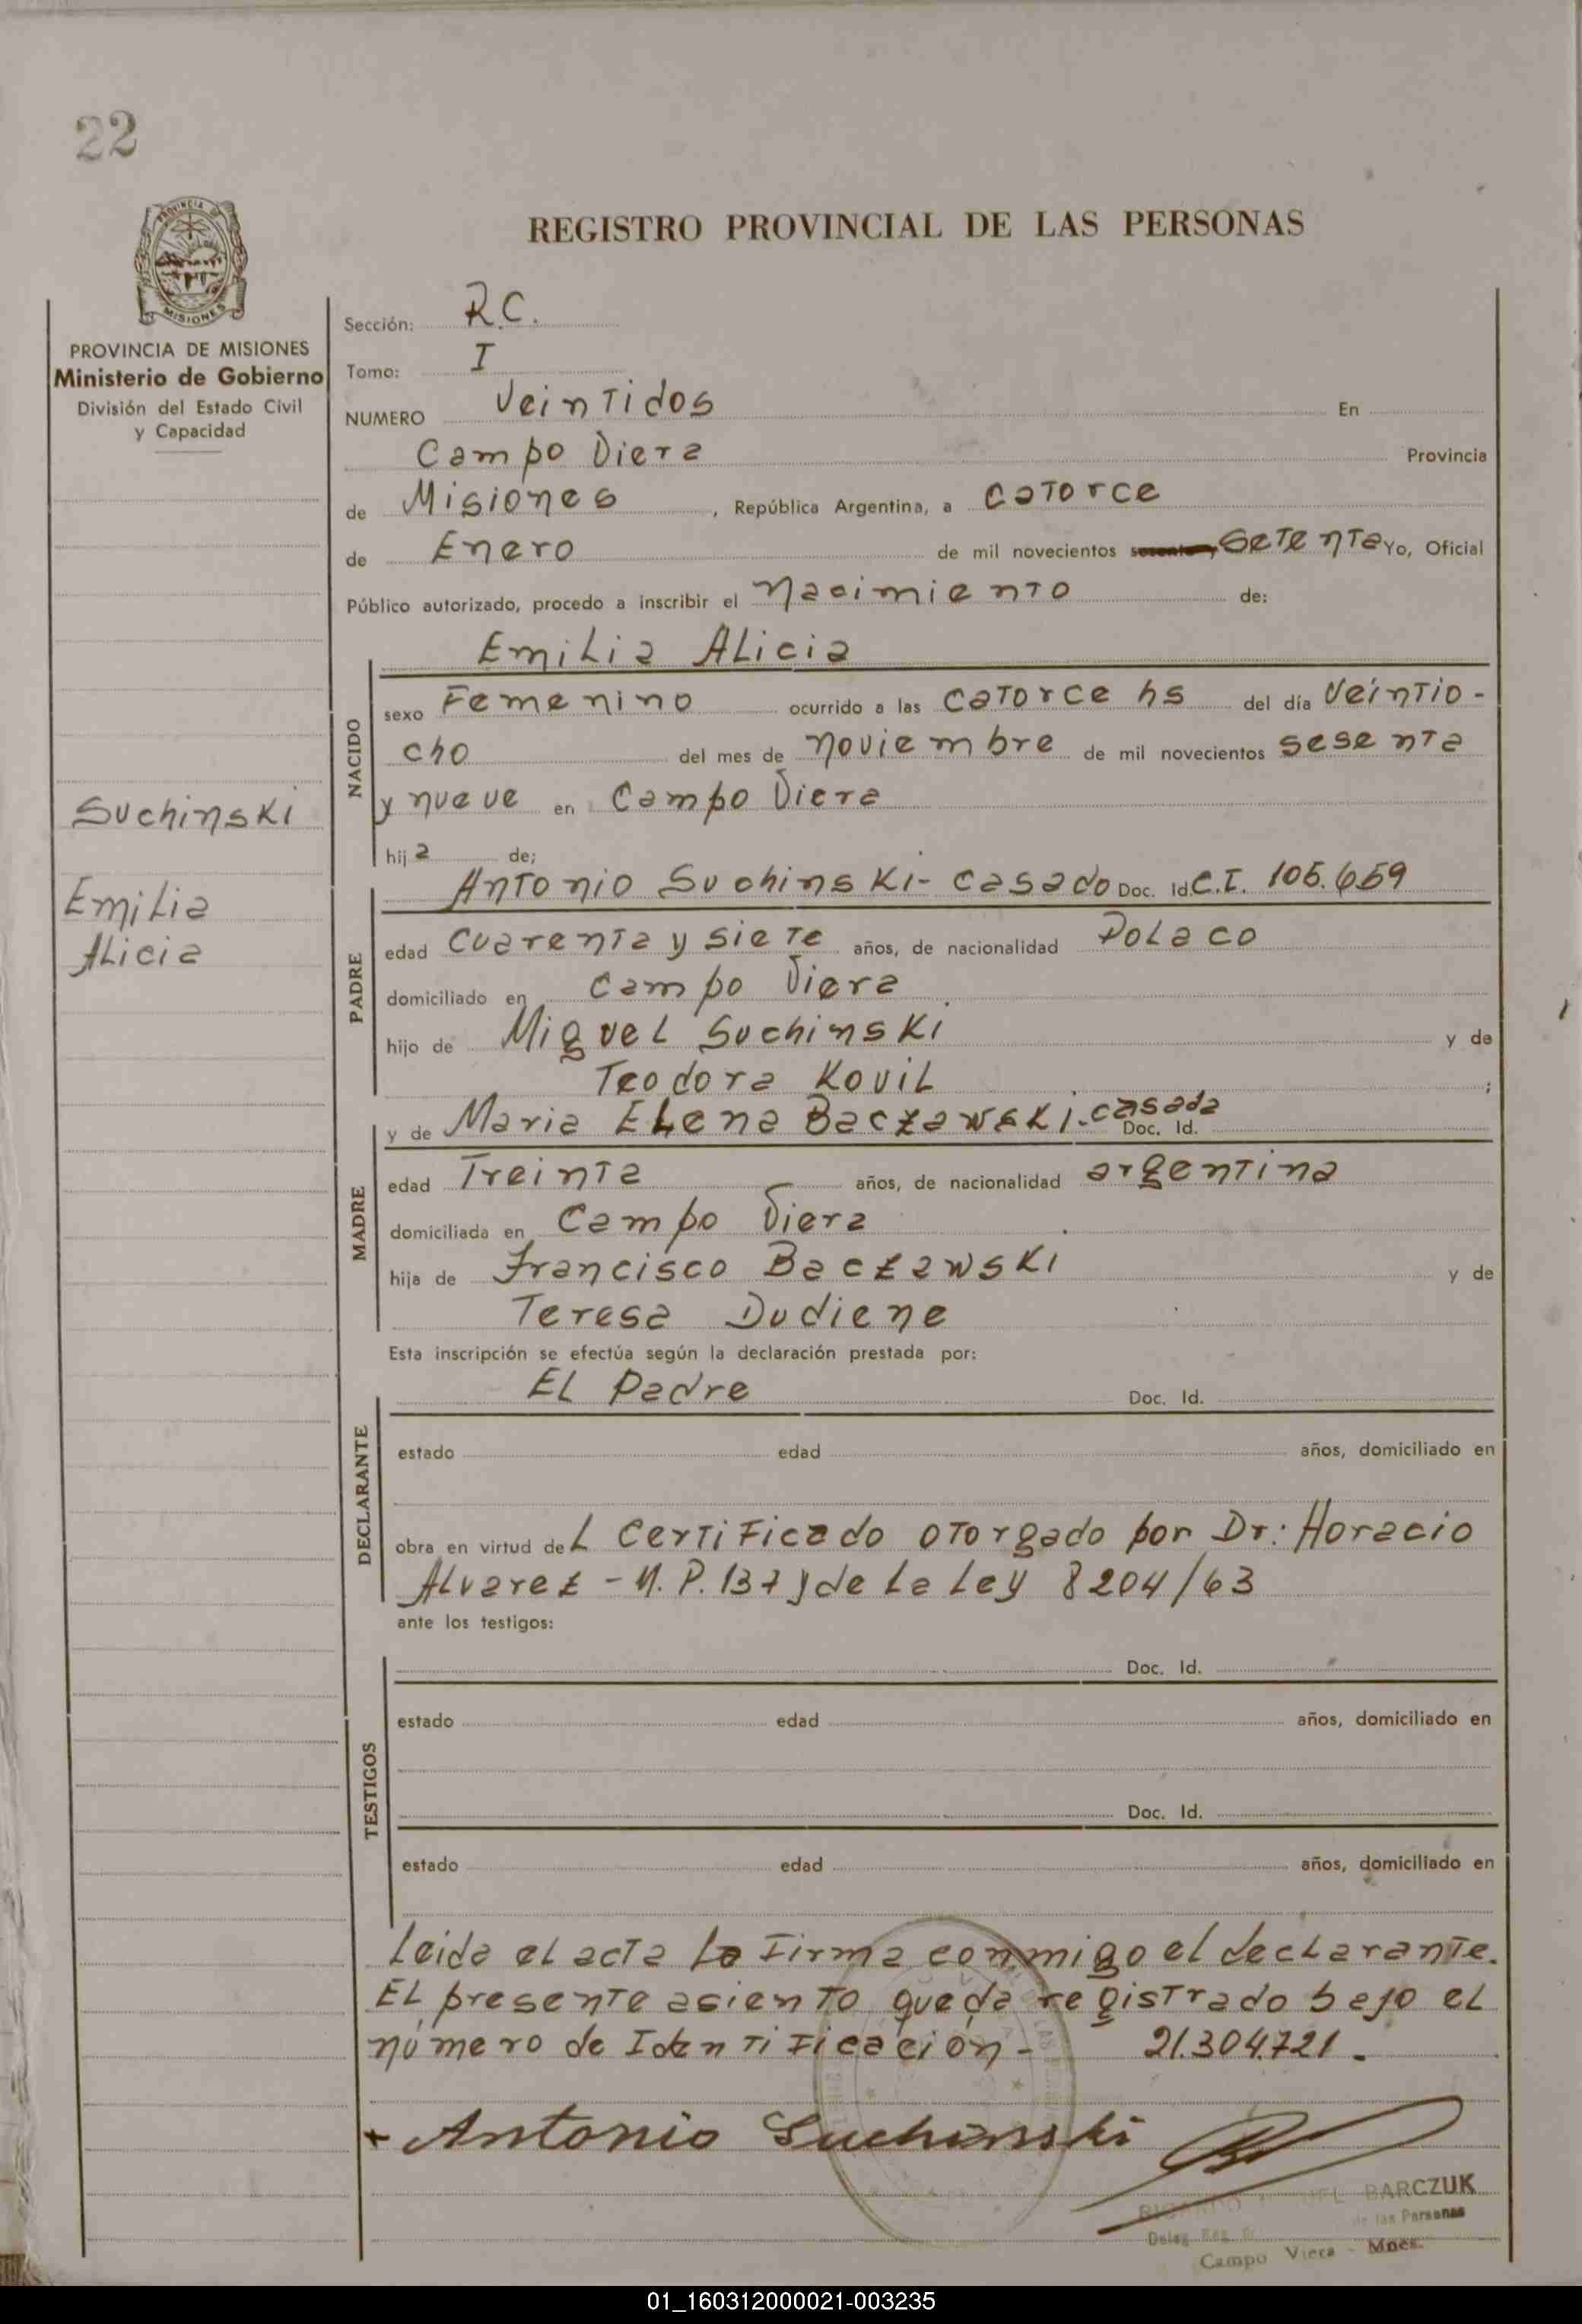 22
PROVINCIA DE
MISIONES
REGISTRO PROVINCIAL DE LAS PERSONAS
PROVINCIA DE MISIONES
Ministerio de Gobierno
División del Estado Civil
y Capacidad
Suchinski
Emilia
Alicia
Sección: R.C.
Tomo: I
NUMERO Veintidos En
Campo Viera Provincia
de Misiones, República Argentina, a catorce
de Enero de mil novecientos sesenta, setenta Yo, Oficial
Público autorizado, procedo a inscribir el Nacimiento de:
Emilia Alicia
NACIDO
sexo Femenino ocurrido a las catorce hs del día veintio-
cho del mes de noviembre de mil novecientos sesenta
y nueve en Campo Viera
hija de;
PADRE
Antonio Suchinski- casado Doc. Id. C.I. 105.659
edad cuarenta y siete años, de nacionalidad Polaco
domiciliado en Campo Viera
hijo de Miguel Suchinski y de
Teodora Kovil ;
MADRE
y de Maria Elena Baczawski-casada Doc. Id.
edad Treinta años, de nacionalidad argentina
domiciliada en Campo Viera
hija de Francisco Baczawski y de
Teresa Dudiene
Esta inscripción se efectúa según la declaración prestada por:
DECLARANTE
El Padre Doc. Id.
estado edad años, domiciliado en
obra en virtud del certificado otorgado por Dr: Horacio
Alvarez - M.P. 137 y de la Ley 8204/63
ante los testigos:
TESTIGOS
Doc. Id.
estado edad años, domiciliado en
Doc. Id.
estado edad años, domiciliado en
Leida el acta la firma conmigo el declarante.
El presente asiento queda registrado bajo el
número de Identificación- 21.304.721.
+ Antonio Suchinski
BARCZUK
de las Personas
Campo Viera - Mnes.
01_160312000021-003235